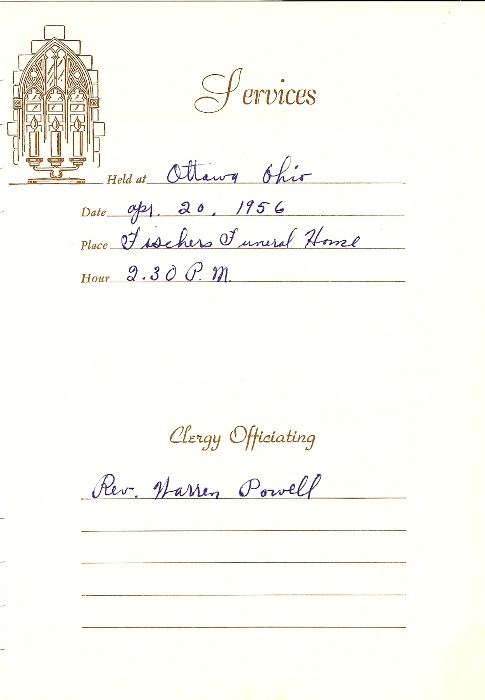 Services
Held at Ottawa Ohio
Date Apr. 20, 1956
Place Fischers Funeral Home
Hour 2.30 P.M.
Clergy Officiating
Rev. Warren Powell